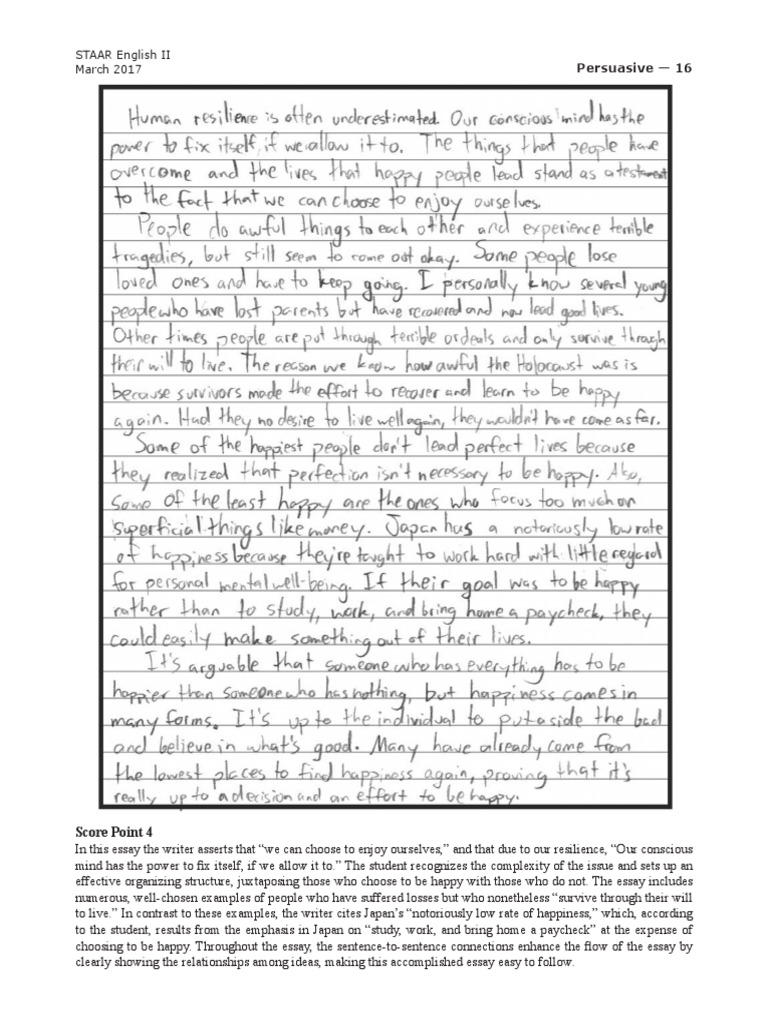 STAAR English II
March 2017
Persuasive — 16
Human resilience is often underestimated. Our conscious mind has the
power to fix itself, if we allow it to. The things that people have
overcome and the lives that happy people lead stand as a testament
to the fact that we can choose to enjoy ourselves.
People do awful things to each other and experience terrible
tragedies, but still seem to come out okay. Some people lose
loved ones and have to keep going. I personally know several young
people who have lost parents but have recovered and now lead good lives.
Other times people are put through terrible ordeals and only survive through
their will to live. The reason we know how awful the Holocaust was is
because survivors made the effort to recover and learn to be happy
again. Had they no desire to live well again, they wouldn't have come as far.
Some of the happiest people don't lead perfect lives because
they realized that perfection isn't necessary to be happy. Also,
some of the least happy are the ones who focus too much on
superficial things like money. Japan has a notoriously low rate
of happiness because they're taught to work hard with little regard
for personal mental well-being. If their goal was to be happy
rather than to study, work, and bring home a paycheck, they
could easily make something out of their lives.
It's arguable that someone who has everything has to be
happier than someone who has nothing, but happiness comes in
many forms. It's up to the individual to put aside the bad
and believe in what's good. Many have already come from
the lowest places to find happiness again, proving that it's
really up to a decision and an effort to be happy.
Score Point 4
In this essay the writer asserts that “we can choose to enjoy ourselves,” and that due to our resilience, “Our conscious
mind has the power to fix itself, if we allow it to.” The student recognizes the complexity of the issue and sets up an
effective organizing structure, juxtaposing those who choose to be happy with those who do not. The essay includes
numerous, well-chosen examples of people who have suffered losses but who nonetheless “survive through their will
to live.” In contrast to these examples, the writer cites Japan’s “notoriously low rate of happiness,” which, according
to the student, results from the emphasis in Japan on “study, work, and bring home a paycheck” at the expense of
choosing to be happy. Throughout the essay, the sentence-to-sentence connections enhance the flow of the essay by
clearly showing the relationships among ideas, making this accomplished essay easy to follow.